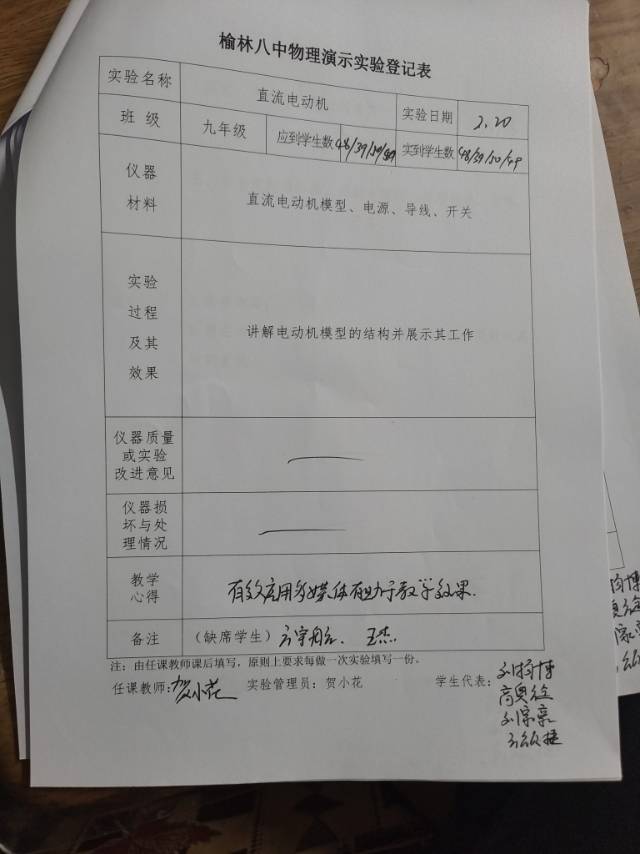 榆林八中物理演示实验登记表
实验名称 直流电动机 实验日期 2.20
班 级 九年级 应到学生数 48/39/50/49 实到学生数 48/39/50/49
仪器
材料
直流电动机模型、电源、导线、开关
实验
过程
及其
效果
讲解电动机模型的结构并展示其工作
仪器质量
或实验
改进意见
仪器损
坏与处
理情况
教学
心得
有效应用多媒体有助于教学效果.
备注 (缺席学生) 王杰
注：由任课教师课后填写，原则上要求每做一次实验填写一份。
任课教师:贺小花 实验管理员：贺小花 学生代表: